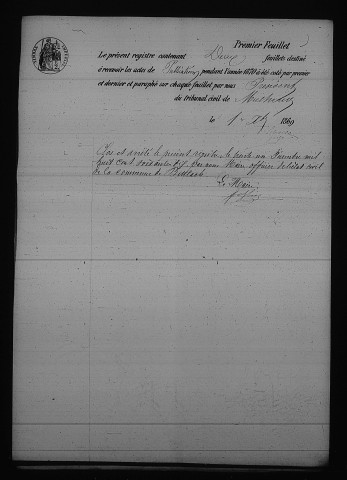 Premier Feuillet
Le présent registre contenant Deux feuillets destiné
à recevoir les actes de Publications pendant l'année 1870 a été coté par premier
et dernier et paraphé sur chaque feuillet par nous Président
du tribunal civil de
le 1 1869
Clos et arrêté le présent registre le trente un Décembre mil
huit cent soixante dix par nous Maire officier de l'état civil
de la commune de
Le Maire